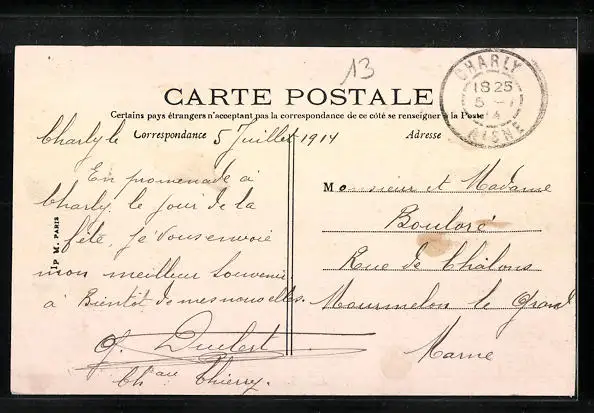 13
CHARLY
18 25
5 - 7
14
AISNE
CARTE POSTALE
Certains pays étrangers n'acceptant pas la correspondance de ce côté se renseigner à la Poste
Correspondance
Adresse
Charly le 5 Juillet 1914
En promenade à
Charly, le jour de la
fête, je vous envoie
mon meilleur Souvenir
à Bientôt de mes nouvelles.
Ch au Thierry.
IP M. PARIS
Monsieur et Madame
Rue de Châlons
Mourmelon le Grand
Marne